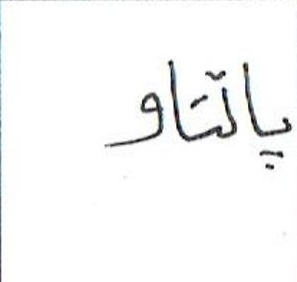 پاڵتاو